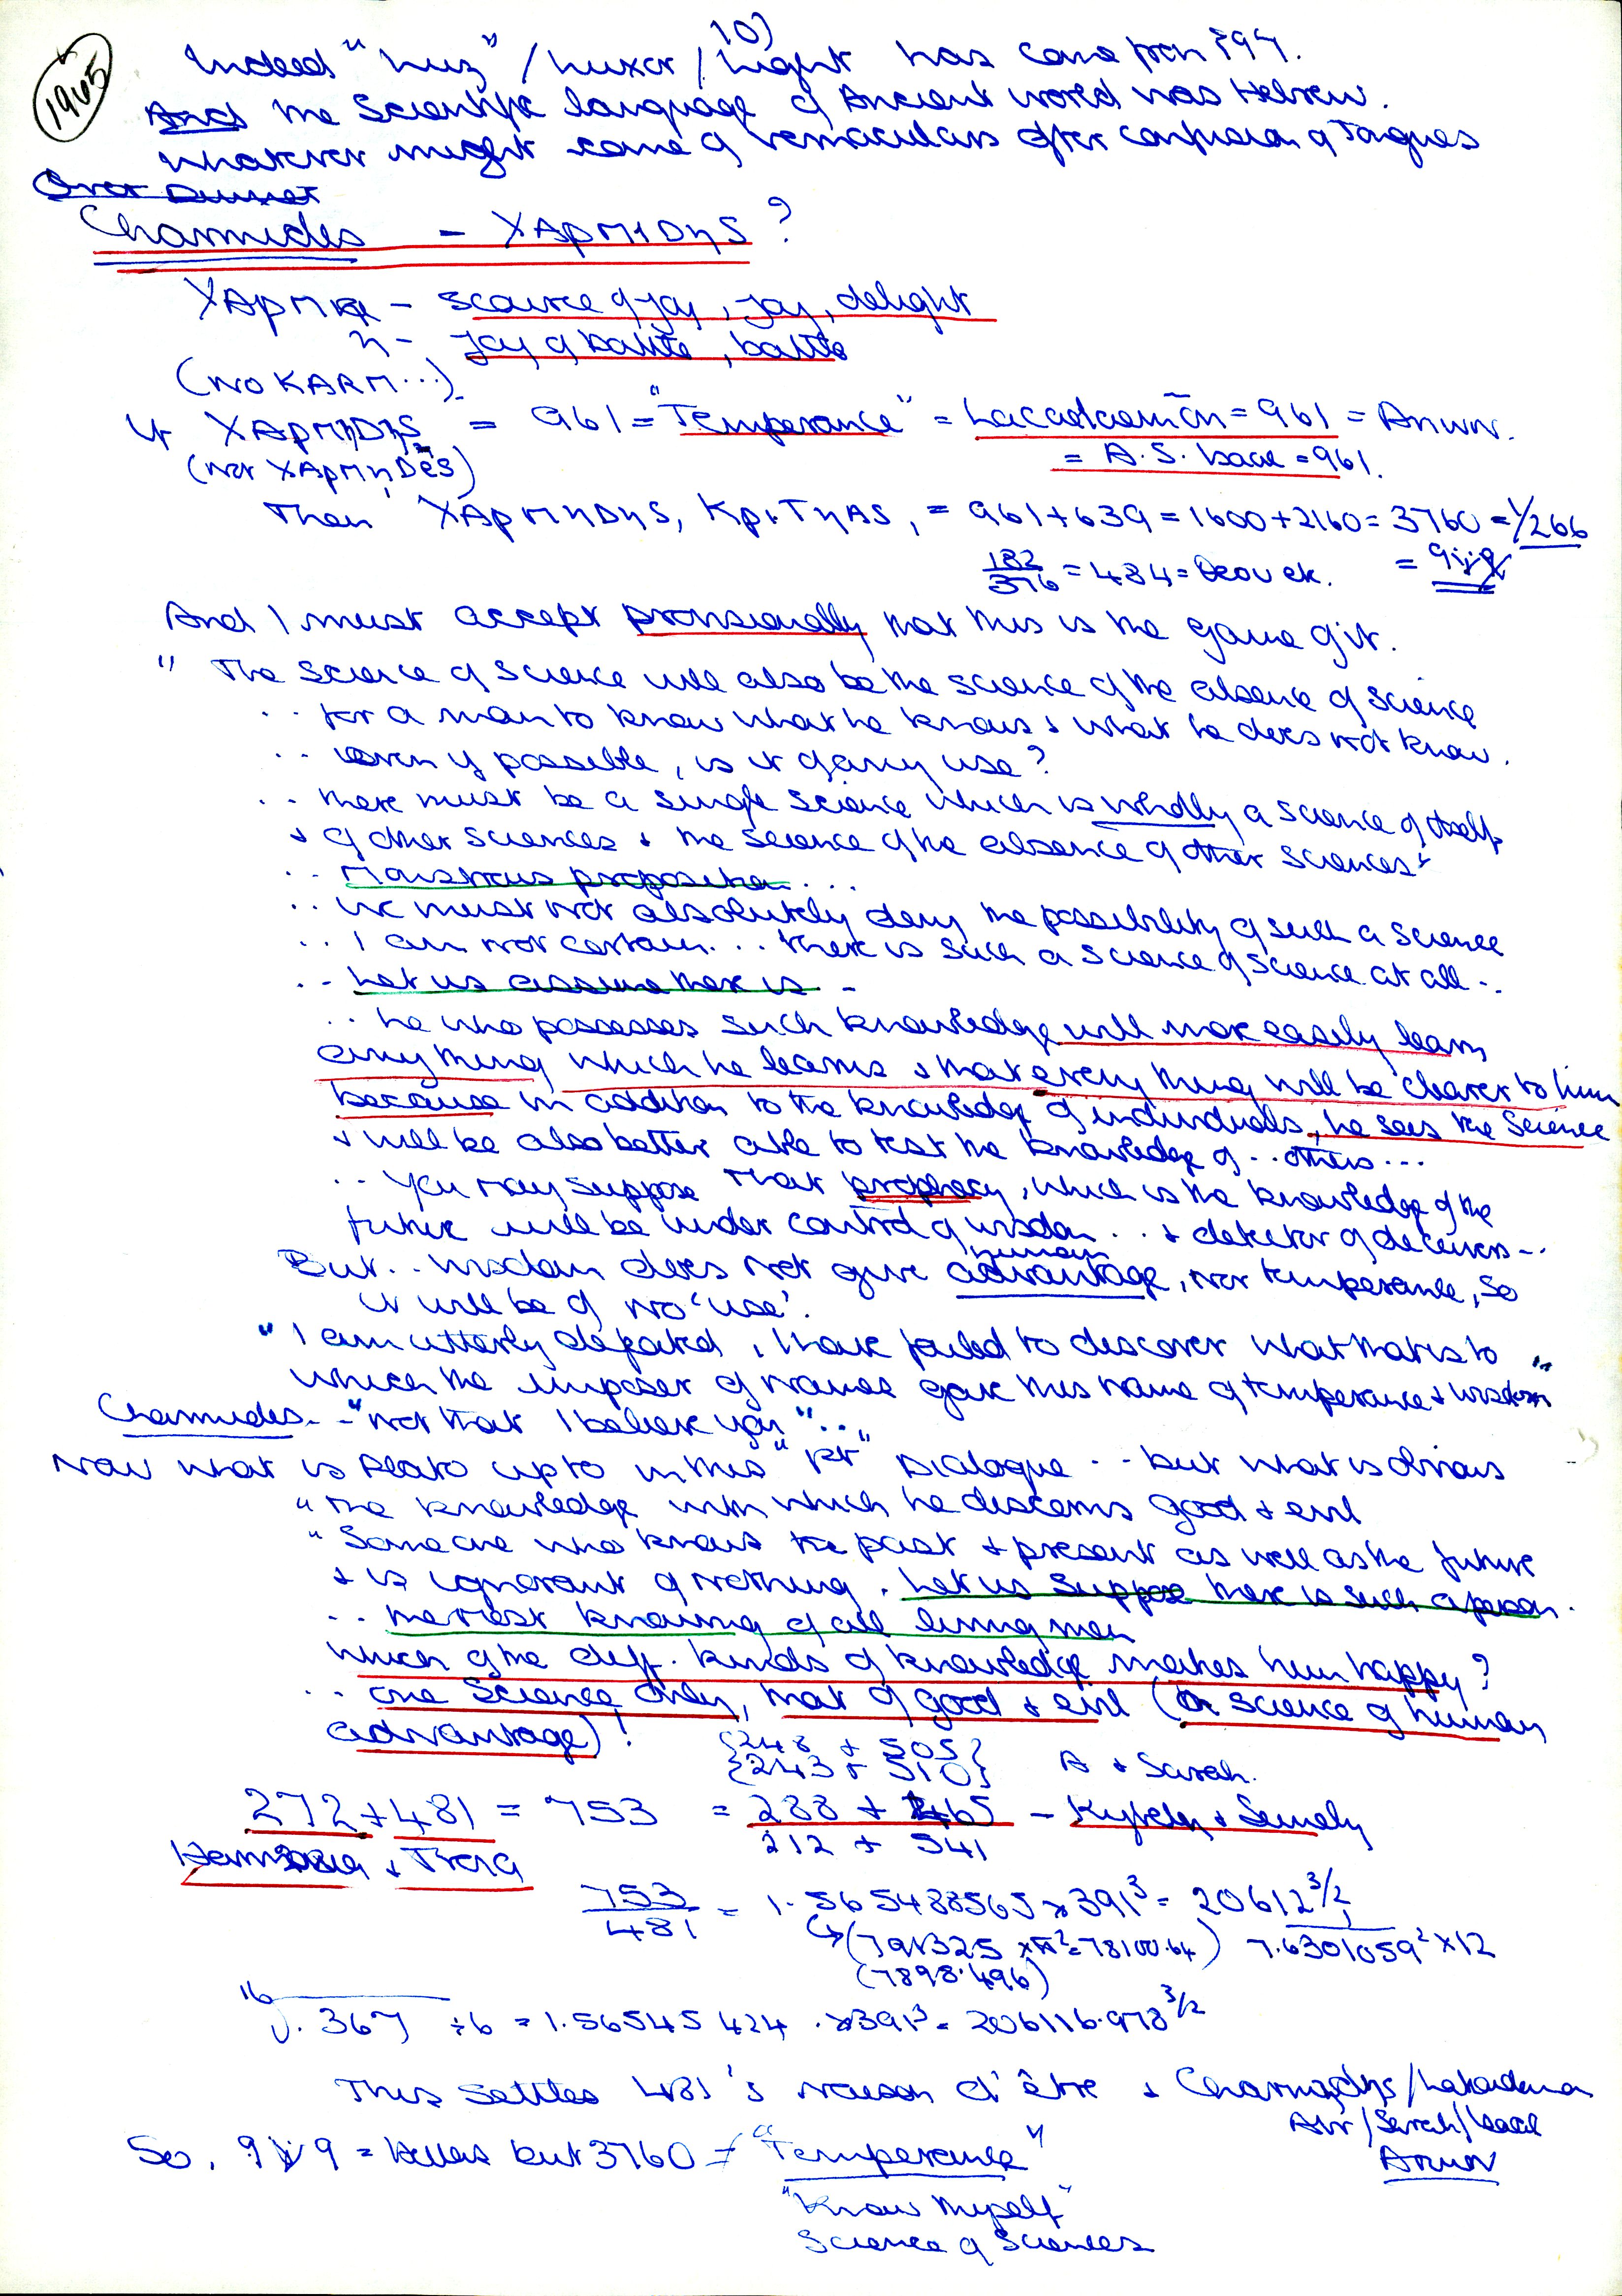 10)
1965
Indeed "Luz" / Luxor / Light has come from
And the Scientific language of Ancient world was Hebrew.
whatever might come of vernaculars after confusion of Tongues
Charmides – XAρM1DηS ?
XAρMA – source of joy, joy, delight
η – joy of battle, battle
(no KARM...)
If XAρMηDηS = 961 = "Temperance" = Lacadaemōn = 961 = Anwn.
(not XAρMηDēS) = A.S. Isaac = 961.
Then XAρMηDηS, KριTηAS, = 961+639 = 1600+2160 = 3760 = 1/266
182/376 = 484 =
And I must accept provisionally that this is the game of it.
" The science of science will also be the science of the absence of science
.. for a man to know what he knows & what he does not know.
.. even if possible, is it of any use?
.. there must be a single science which is wholly a science of itself
& of other sciences & the science of the absence of other sciences
.. Monstrous proposition ...
.. we must not absolutely deny the possibility of such a science
.. I am not certain... there is such a science of science at all ..
.. Let us assume there is –
.. he who possesses such knowledge will more easily learn
anything which he learns & that every thing will be clearer to him
because in addition to the knowledge of individuals, he sees the Science
& will be also better able to test the knowledge of .. others ...
.. You may suppose that prophecy, which is the knowledge of the
future will be under control of wisdom ... & detector of deceivers ...
But .. wisdom does not give human advantage, nor temperance, so
it will be of no 'use'.
" I am utterly defeated, I have failed to discover what that is to
which the imposer of names gave this name of temperance & wisdom"
Charmides – "not that I believe you" ..
Now what is Plato up to in this "1st" Dialogue .. but what is obvious
" the knowledge with which he discerns good & evil
" Someone who knows the past & present as well as the future
& is ignorant of nothing. Let us suppose there is such a person.
.. the most knowing of all living men
which of the diff. kinds of knowledge makes him happy?
.. one science only, that of good & evil (or science of human
advantage)!
{248 + 505}
{243 + 510} A & Sarah.
272 + 481 = 753 = 288 + 465 – Kybely & Semely
212 + 541
& Troia
753/481 = 1.565488565 x 391³ = 20612 3/2
(791325 x π² = 78100.64) 7.6301059² x 12
(7898.496)
16√.367 ÷ 6 = 1.56545424 . x 391³ = 206116.978 3/2
This settles 481's raison d'être & Charmydys / Lakedemon
Abr / Sarah / Isaac
Anwn
So, 919 = Hellas but 3760 = "Temperance"
"Know Thyself"
Science of Sciences